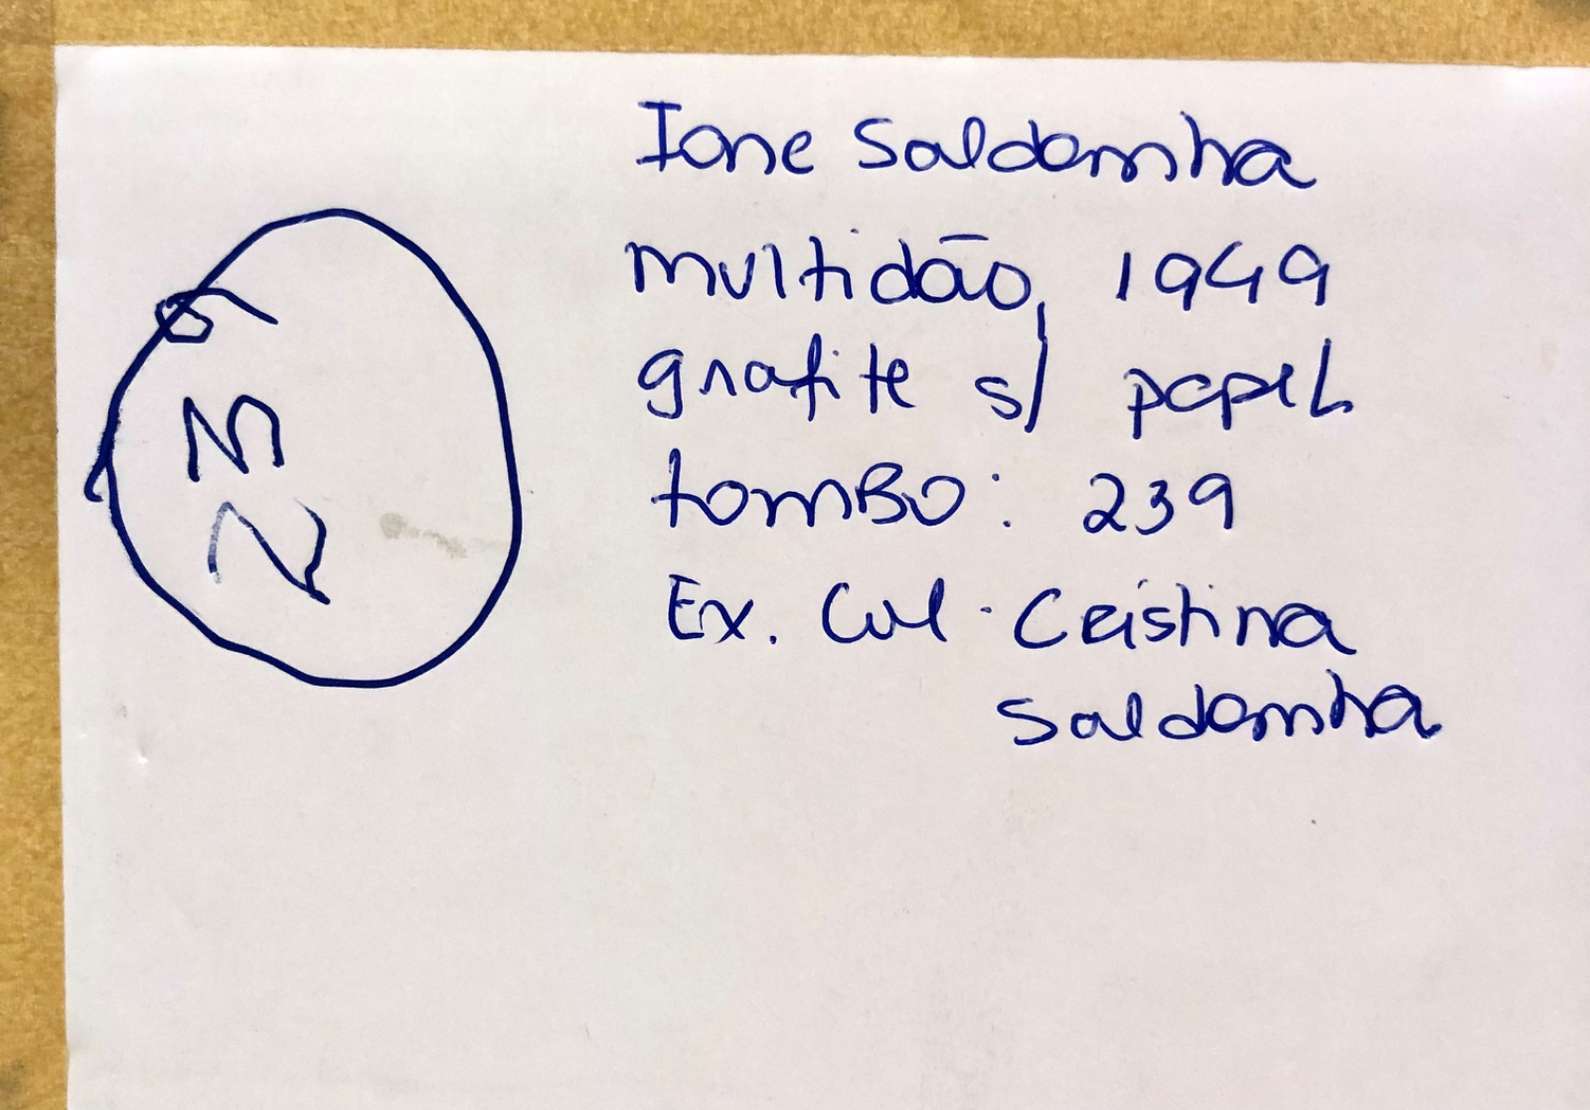 239
Ione Saldanha
multidão, 1949
grafite s/ papel
tomBo: 239
Ex. Col. Cristina
Saldanha